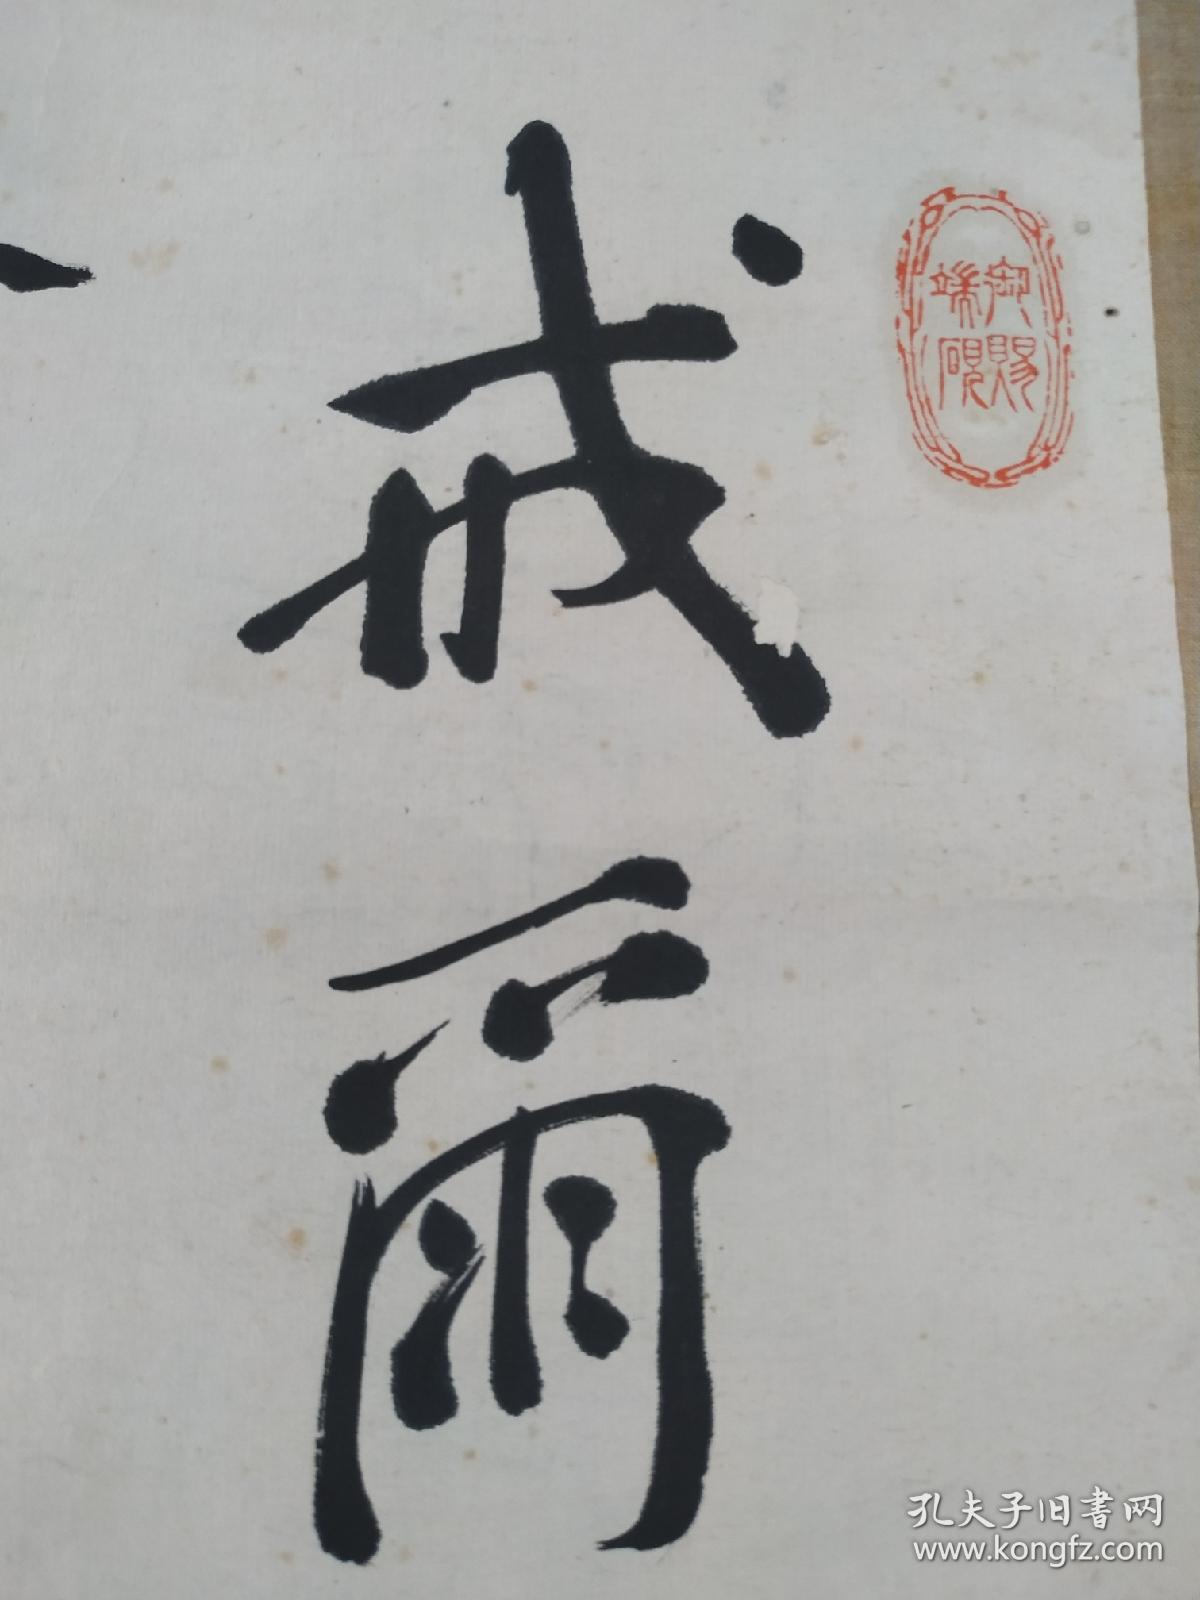 賜
端硯
戒爾
孔夫子旧书网
www.kongfz.com